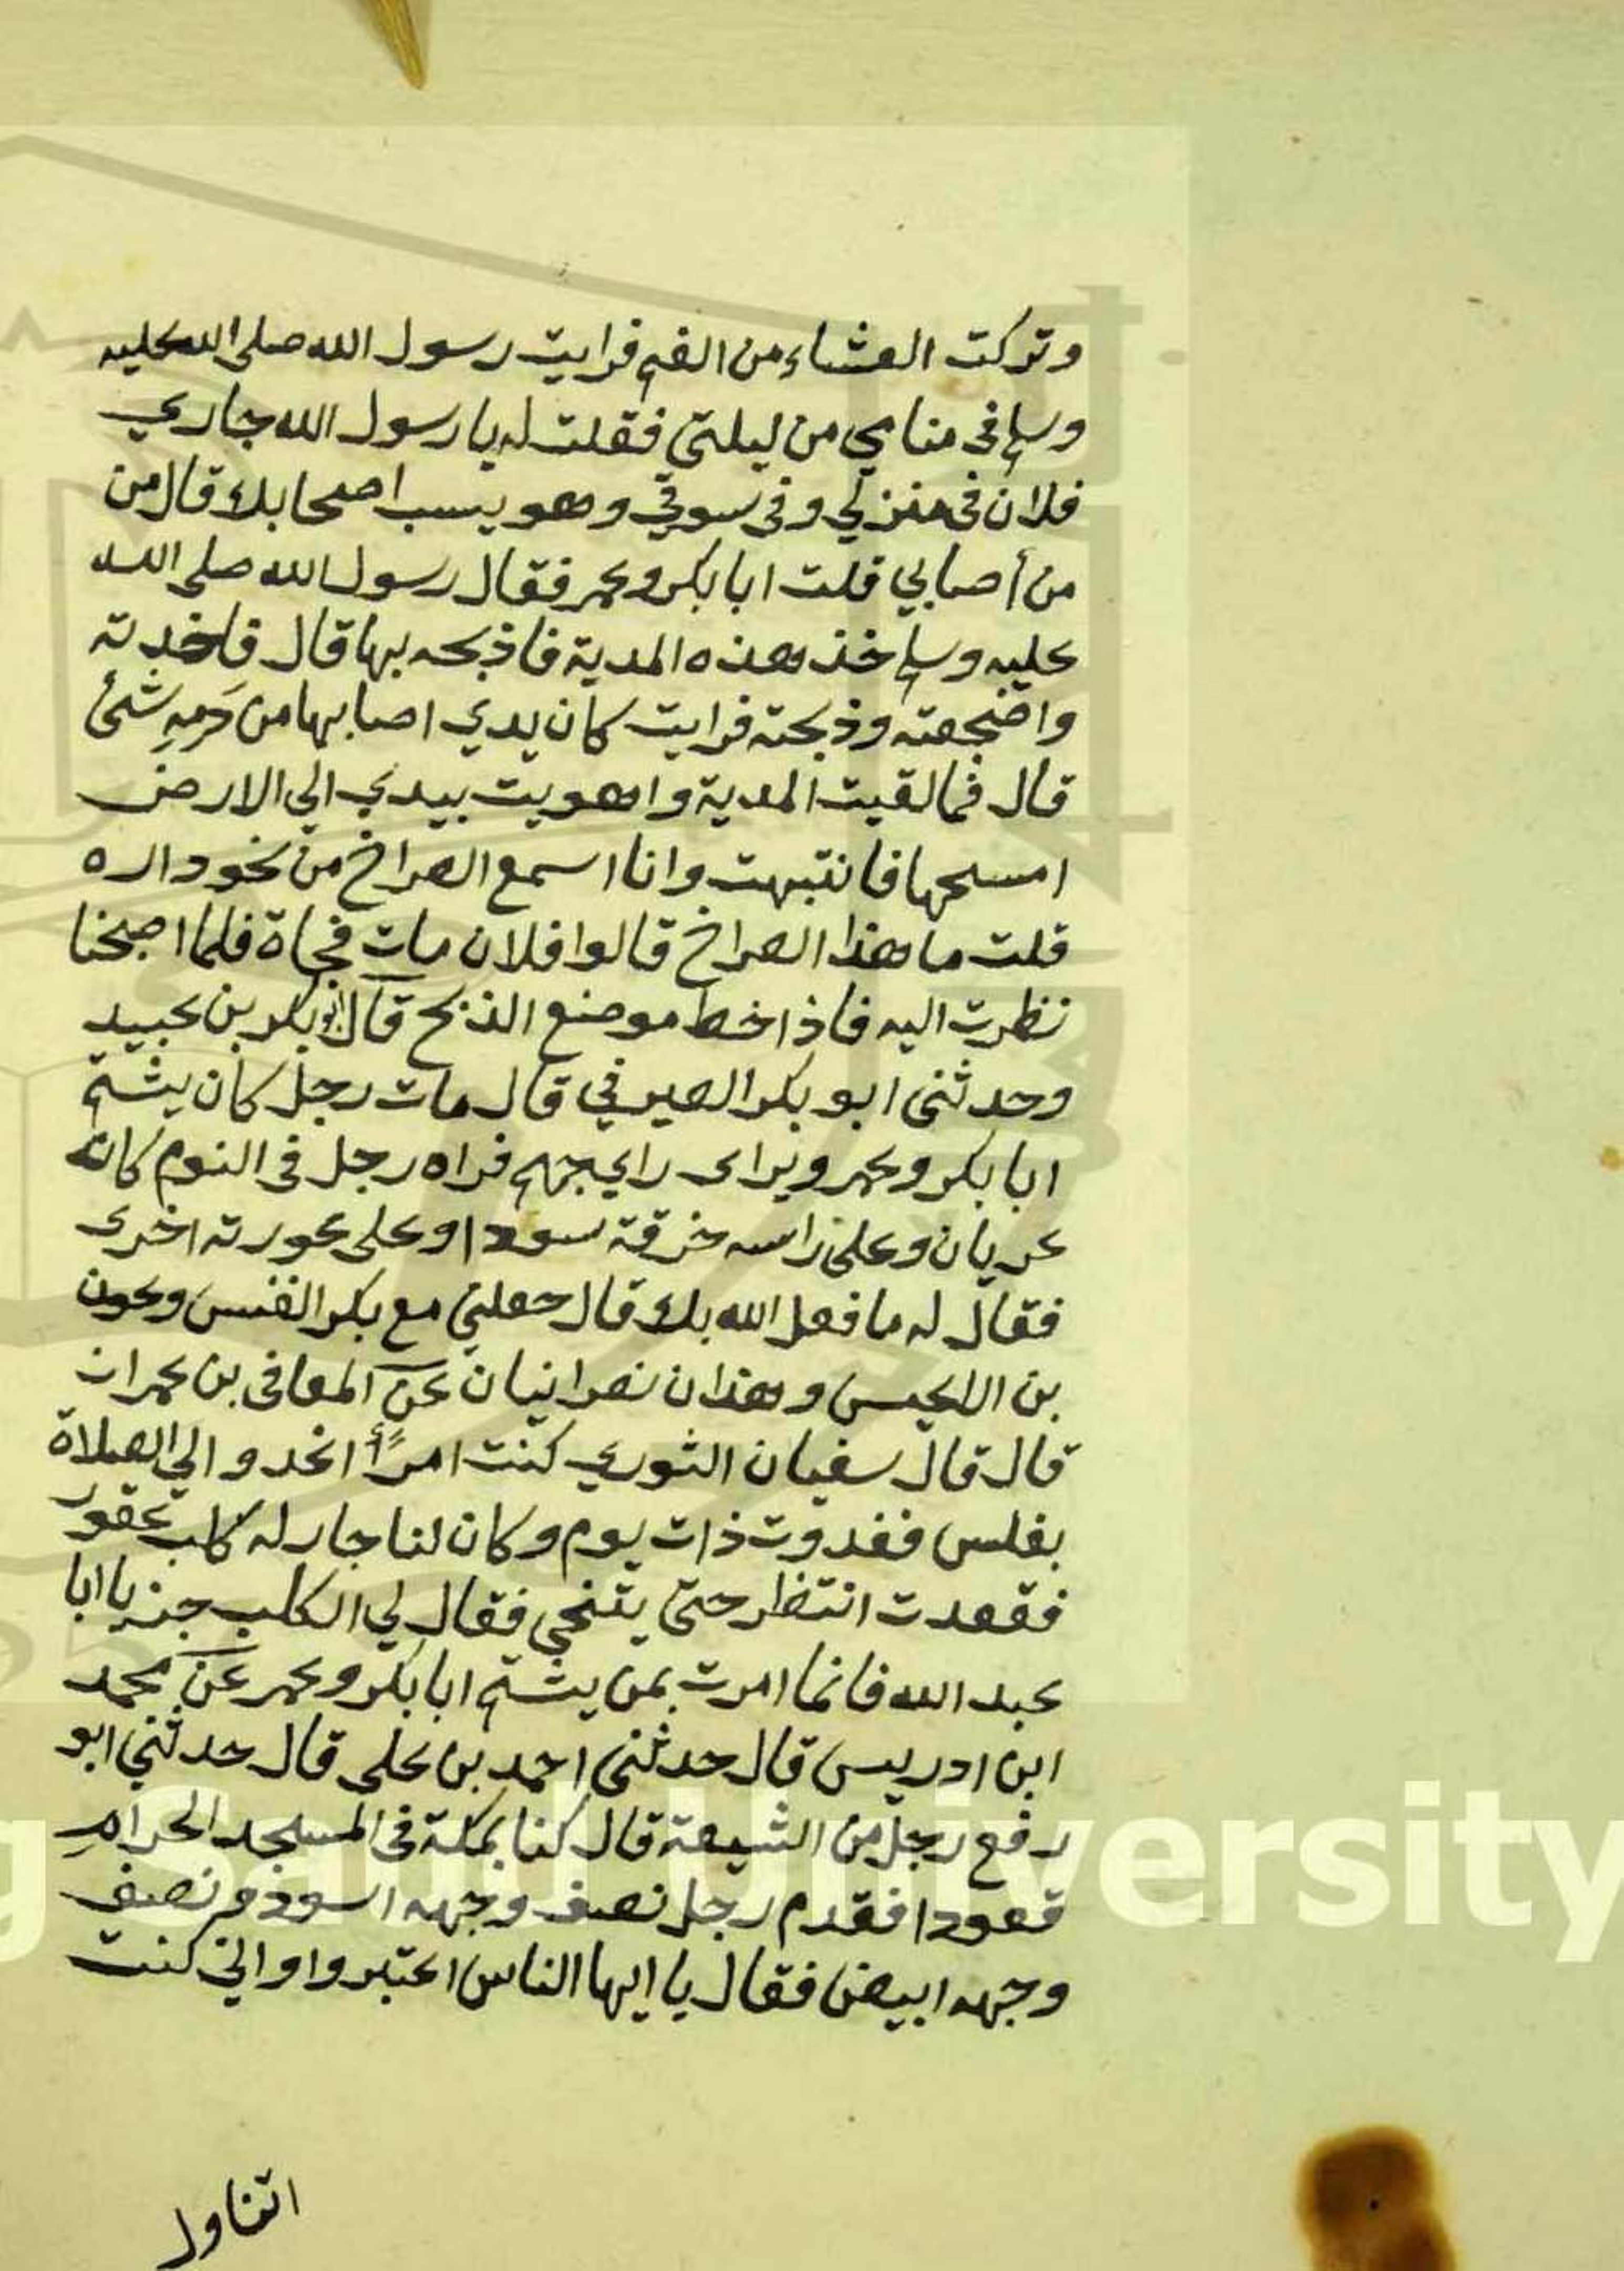 وتركت العشاء من الغم فرايت رسول الله صلى الله عليه
وسلم في منامي من ليلتي فقلت له يا رسول الله جاري
فلان في منزلي وفي سوقي وهو يسب اصحابك قال من
من أصابي قلت ابا بكر وعمر فقال رسول الله صلى الله
عليه وسلم خذ هذه المدية فاذبحه بها قال فاخذته
واضجعته وذبحته فرايت كان يدي اصابها من دَمِهِ شئ
قال فالقيت المدية واهويت بيدي الي الارض
امسحها فانتبهت وانا اسمع الصراخ من نحو داره
قلت ما هذا الصراخ قالوا فلان مات فجاة فلما اصبحنا
نظرت اليه فاذا خط موضع الذبح قال ابو بكر بن عبيد
وحدثني ابو بكر الصيرفي قال مات رجل كان يشتم
ابا بكر وعمر ويرى راي جهم فراه رجل في النوم كانه
عريان وعلى راسه خرقة سودا وعلى عورته اخرى
فقال له ما فعل الله بك قال جعلني مع بكر القس وعون
بن الاعيسر وهذان نصرانيان عن المعافى بن عمران
قال قال سفيان الثوري كنت امرًأ اغدو الي الصلاة
بغلس فغدوت ذات يوم وكان لنا جار له كلب عقور
فقعدت انتظر حتى يتنحى فقال لي الكلب جز يا ابا
عبد الله فانما امرت بمن يشتم ابا بكر وعمر عن محمد
ابن ادريس قال حدثني احمد بن علي قال حدثني ابو
رفع رجل من الشيعة قال كنا بمكة في المسجد الحرام
قعودا فقدم رجل نصف وجهه اسود ونصف
وجهه ابيض فقال يا ايها الناس اعتبروا واني كنت
اتناول
King Saud University